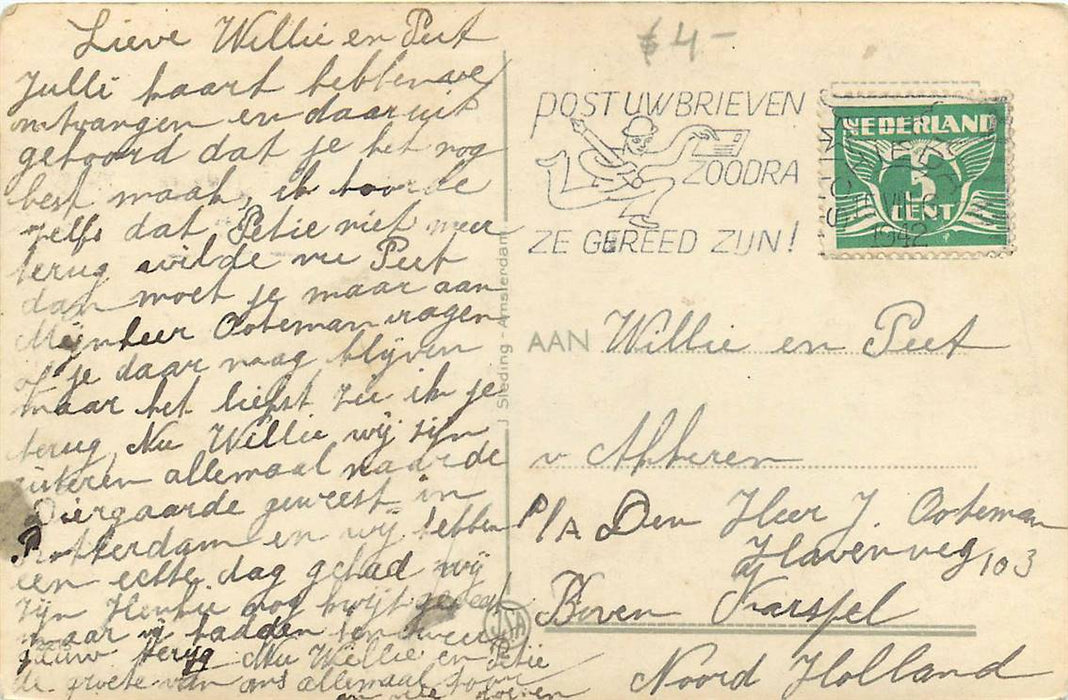 Lieve Willie en Piet
Julli kaart hebben we
ontvangen en daaruit
gehoord dat je het nog
best maak, ik hoorde
zelfs dat Petie niet meer
terug wilde nu Piet
dan moet je maar aan
Mijnheer Ooteman vragen
of je daar mag blijven
maar het liefst zie ik je
terug Nu Willie wij zijn
gisteren allemaal naar de
Diergaarde geweest in
Rotterdam en wij hebben
een echte dag gehad wij
zijn Henkie nog kwijt geweest
maar wij hadden hem weer
gauw terug Nu Willie en Petie
de groete van ons allemaal hoor
en vele zoenen
$4-
POST UW BRIEVEN
ZOODRA
ZE GEREED ZIJN!
NEDERLAND
5
CENT
1942
J. Sleding - Amsterdam
JSA
AAN Willie en Piet
v Akkeren
P/A Den Heer J. Ooteman
Havenweg 103
Boven Karspel
Noord Holland